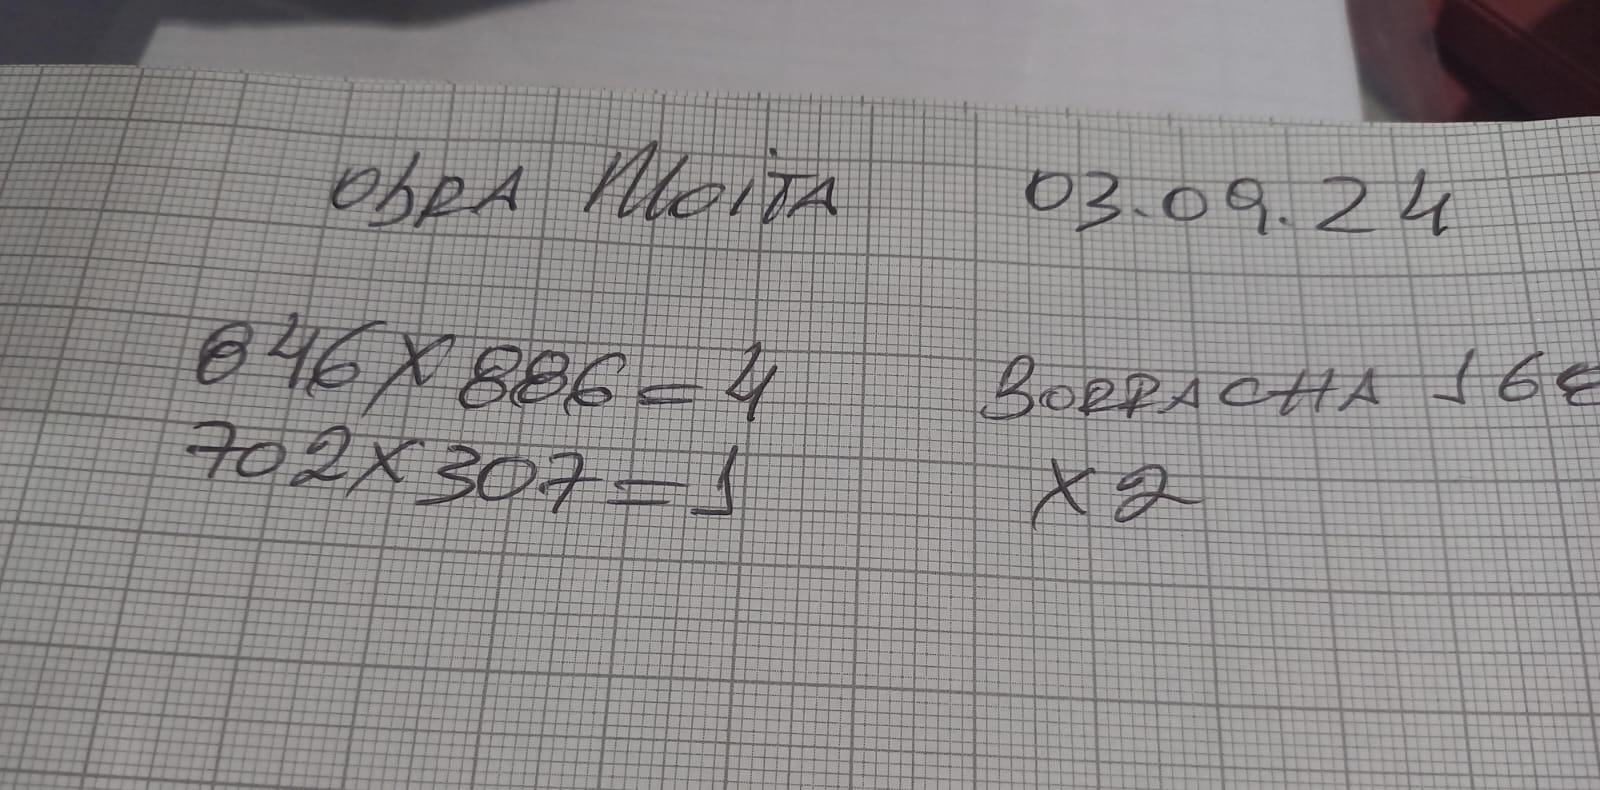 Obra Moita 03.09.24
846x886=4 Borracha 16€
702x307=1 x2